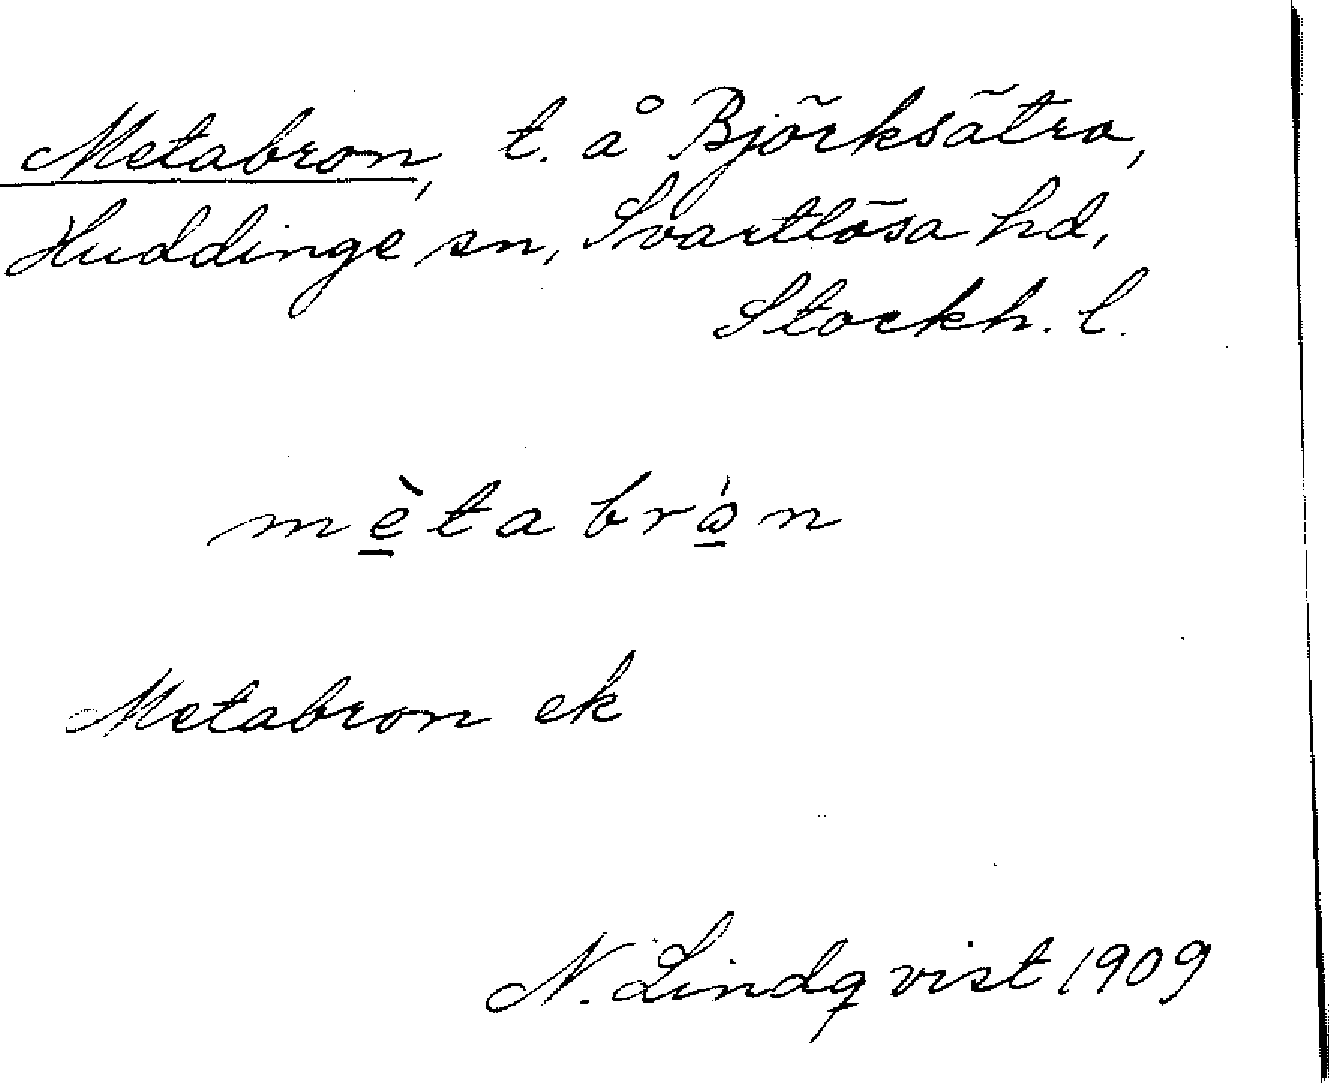 Metabron, t. å Björksätra,
Huddinge sn, Svartlösa hd,
Stockh. l.
mètabrón
Metabron ek
N. Lindqvist 1909